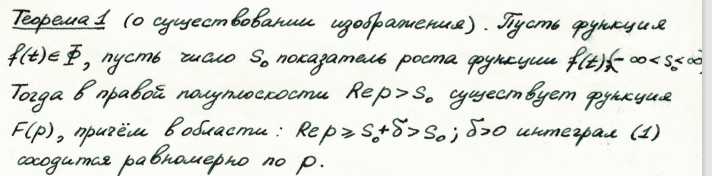 Теорема 1 (о существовании изображения). Пусть функция
f(t)∈Φ, пусть число S₀ показатель роста функции f(t),(-∞<s₀<∞)
Тогда в правой полуплоскости Re p > S₀ существует функция
F(p), причём в области: Re p ⩾ S₀+δ > S₀; δ>0 интеграл (1)
сходится равномерно по p.